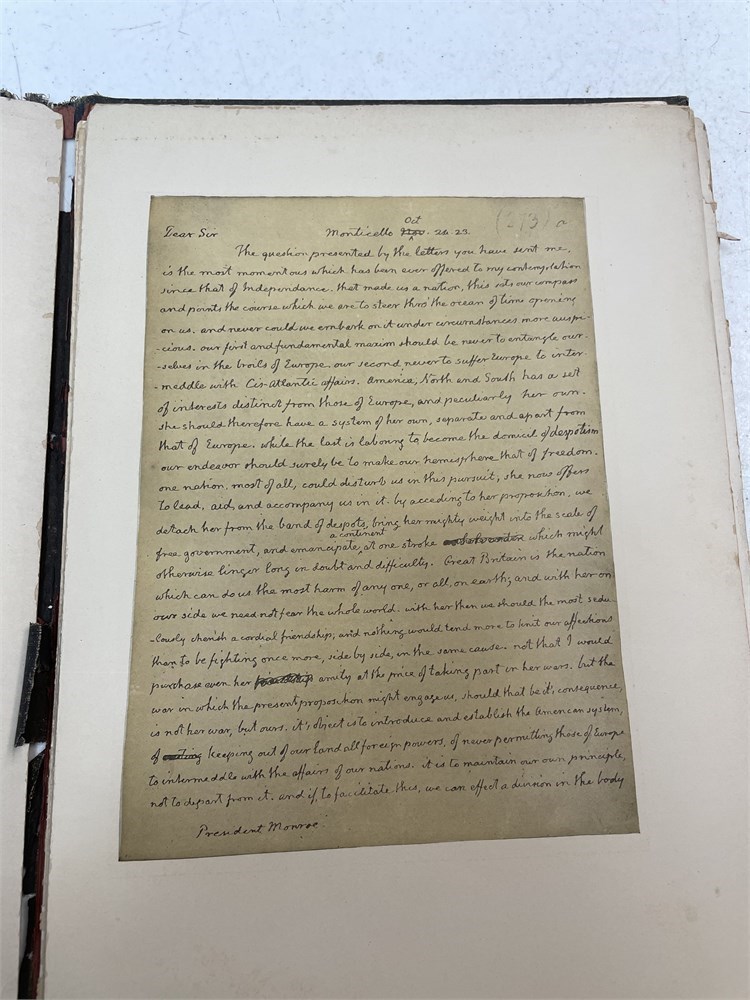 Dear Sir Monticello Oct 26. 23. (273) a
The question presented by the letters you have sent me,
is the most momentous which has been ever offered to my contemplation
since that of Independance. that made us a nation, this sets our compass
and points the course which we are to steer thro' the ocean of time opening
on us. and never could we embark on it under circumstances more auspi-
-cious. our first and fundamental maxim should be never to entangle our-
-selves in the broils of Europe. our second, never to suffer Europe to inter-
-meddle with Cis-Atlantic affairs. America, North and South has a set
of interests distinct from those of Europe, and peculiarly her own.
she should therefore have a system of her own, separate and apart from
that of Europe. while the last is labouring to become the domicil of despotism
our endeavor should surely be to make our hemisphere that of freedom.
one nation, most of all, could disturb us in this pursuit, she now offers
to lead, aid, and accompany us in it. by acceding to her proposition, we
detach her from the band of despots, bring her mighty weight into the scale of
free government, and emancipate a continent at one stroke which might
otherwise linger long in doubt and difficulty. Great Britain is the nation
which can do us the most harm of any one, or all, on earth; and with her on
our side we need not fear the whole world. with her then we should the most sedu-
-lously cherish a cordial friendship; and nothing would tend more to knit our affections
than to be fighting once more, side by side, in the same cause. not that I would
purchase even her amity at the price of taking part in her wars. but the
war in which the present proposition might engage us, should that be it's consequence,
is not her war, but ours. it's object is to introduce and establish the American system,
of keeping out of our land all foreign powers, of never permitting those of Europe
to intermeddle with the affairs of our nations. it is to maintain our own principle,
not to depart from it. and if, to facilitate this, we can effect a division in the body
President Monroe.